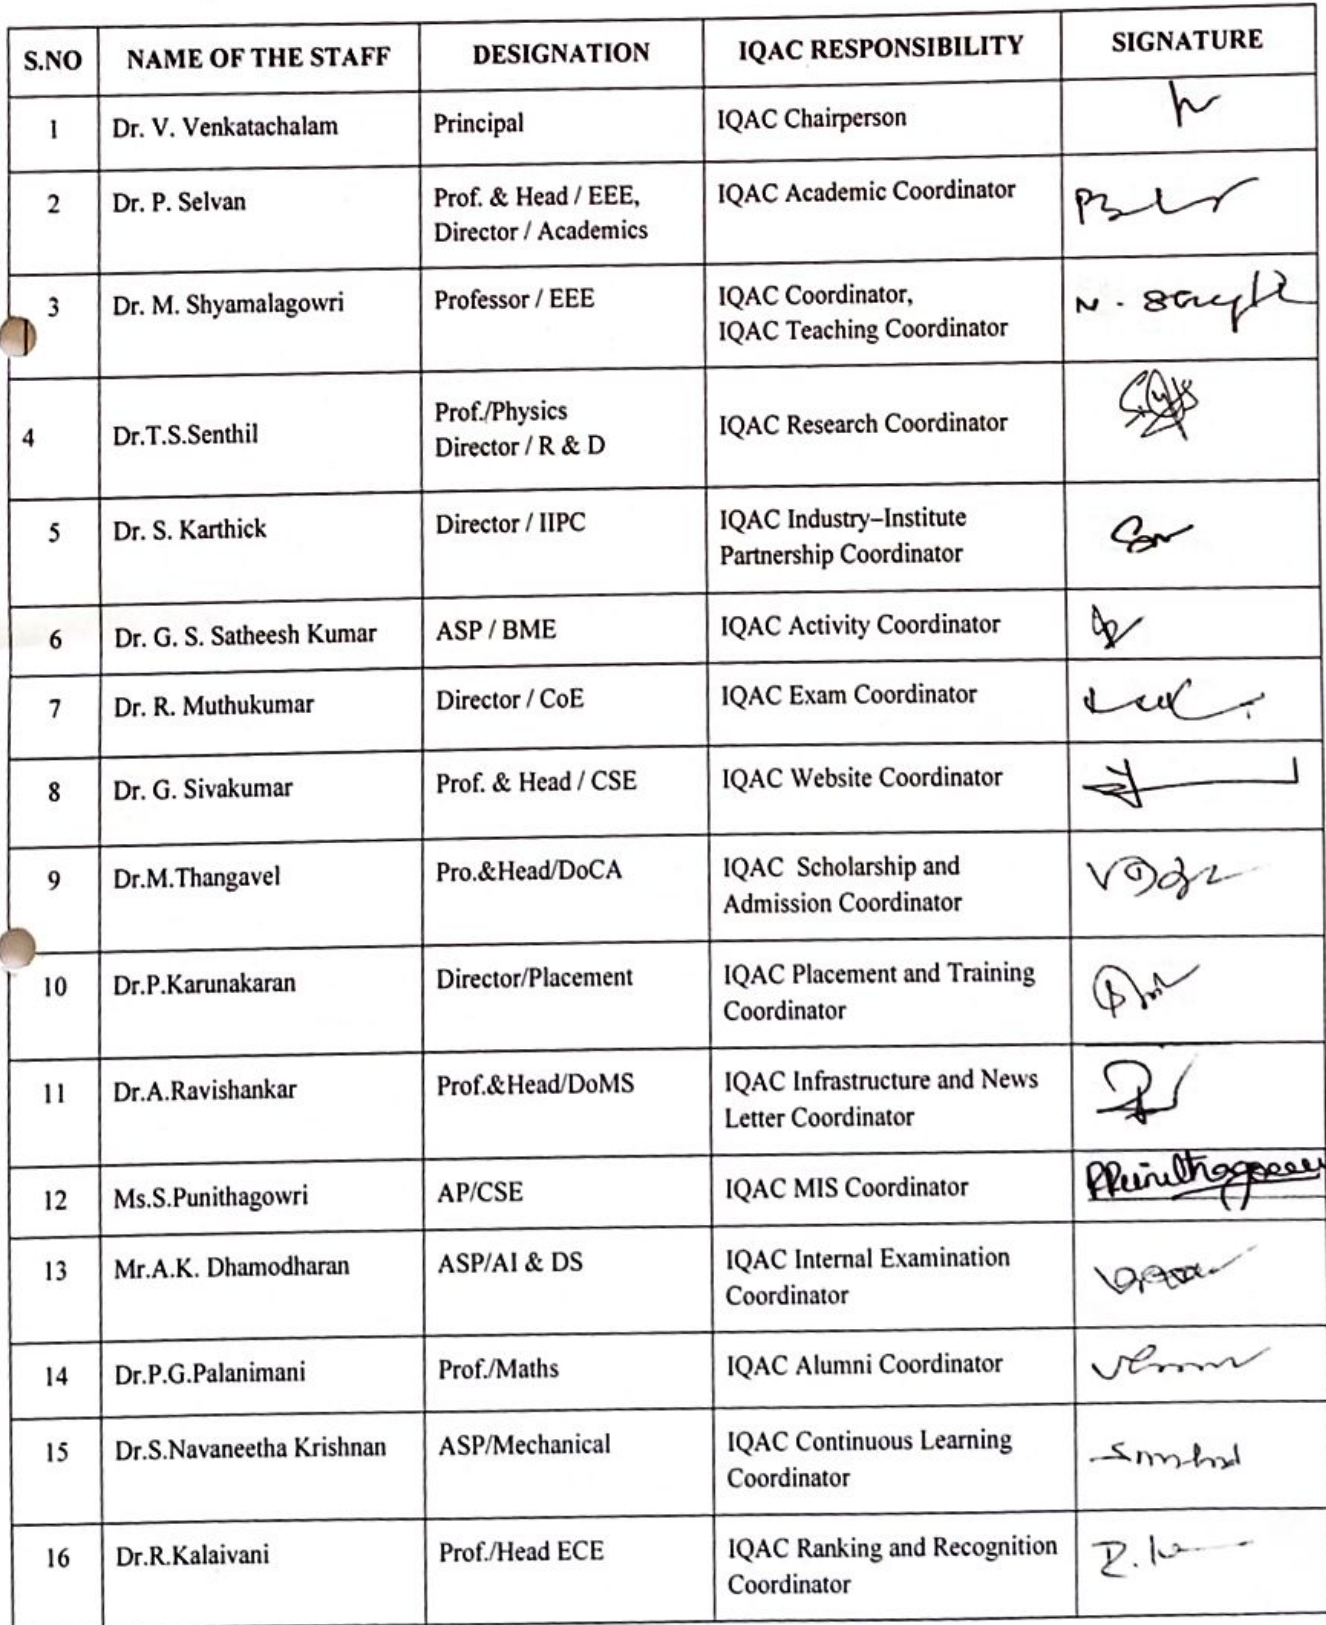 S.NO NAME OF THE STAFF DESIGNATION IQAC RESPONSIBILITY SIGNATURE
1 Dr. V. Venkatachalam Principal IQAC Chairperson
2 Dr. P. Selvan Prof. & Head / EEE, IQAC Academic Coordinator
Director / Academics
3 Dr. M. Shyamalagowri Professor / EEE IQAC Coordinator,
IQAC Teaching Coordinator
4 Dr.T.S.Senthil Prof./Physics IQAC Research Coordinator
Director / R & D
5 Dr. S. Karthick Director / IIPC IQAC Industry–Institute
Partnership Coordinator
6 Dr. G. S. Satheesh Kumar ASP / BME IQAC Activity Coordinator
7 Dr. R. Muthukumar Director / CoE IQAC Exam Coordinator
8 Dr. G. Sivakumar Prof. & Head / CSE IQAC Website Coordinator
9 Dr.M.Thangavel Pro.&Head/DoCA IQAC Scholarship and
Admission Coordinator
10 Dr.P.Karunakaran Director/Placement IQAC Placement and Training
Coordinator
11 Dr.A.Ravishankar Prof.&Head/DoMS IQAC Infrastructure and News
Letter Coordinator
12 Ms.S.Punithagowri AP/CSE IQAC MIS Coordinator
13 Mr.A.K. Dhamodharan ASP/AI & DS IQAC Internal Examination
Coordinator
14 Dr.P.G.Palanimani Prof./Maths IQAC Alumni Coordinator
15 Dr.S.Navaneetha Krishnan ASP/Mechanical IQAC Continuous Learning
Coordinator
16 Dr.R.Kalaivani Prof./Head ECE IQAC Ranking and Recognition
Coordinator